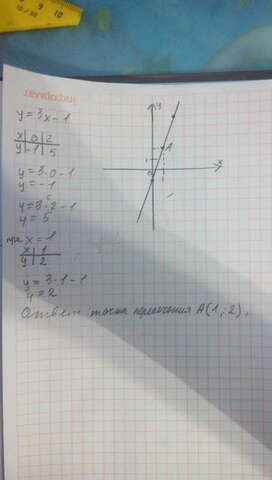 y = 3x - 1
x | 0 | 2
y | -1 | 5
y = 3·0 - 1
y = -1
y = 3·2 - 1
y = 5
при x = 1
x | 1
y | 2
y = 3·1 - 1
y = 2
Ответ: точка пересечения A(1; 2).
y
A
1
x